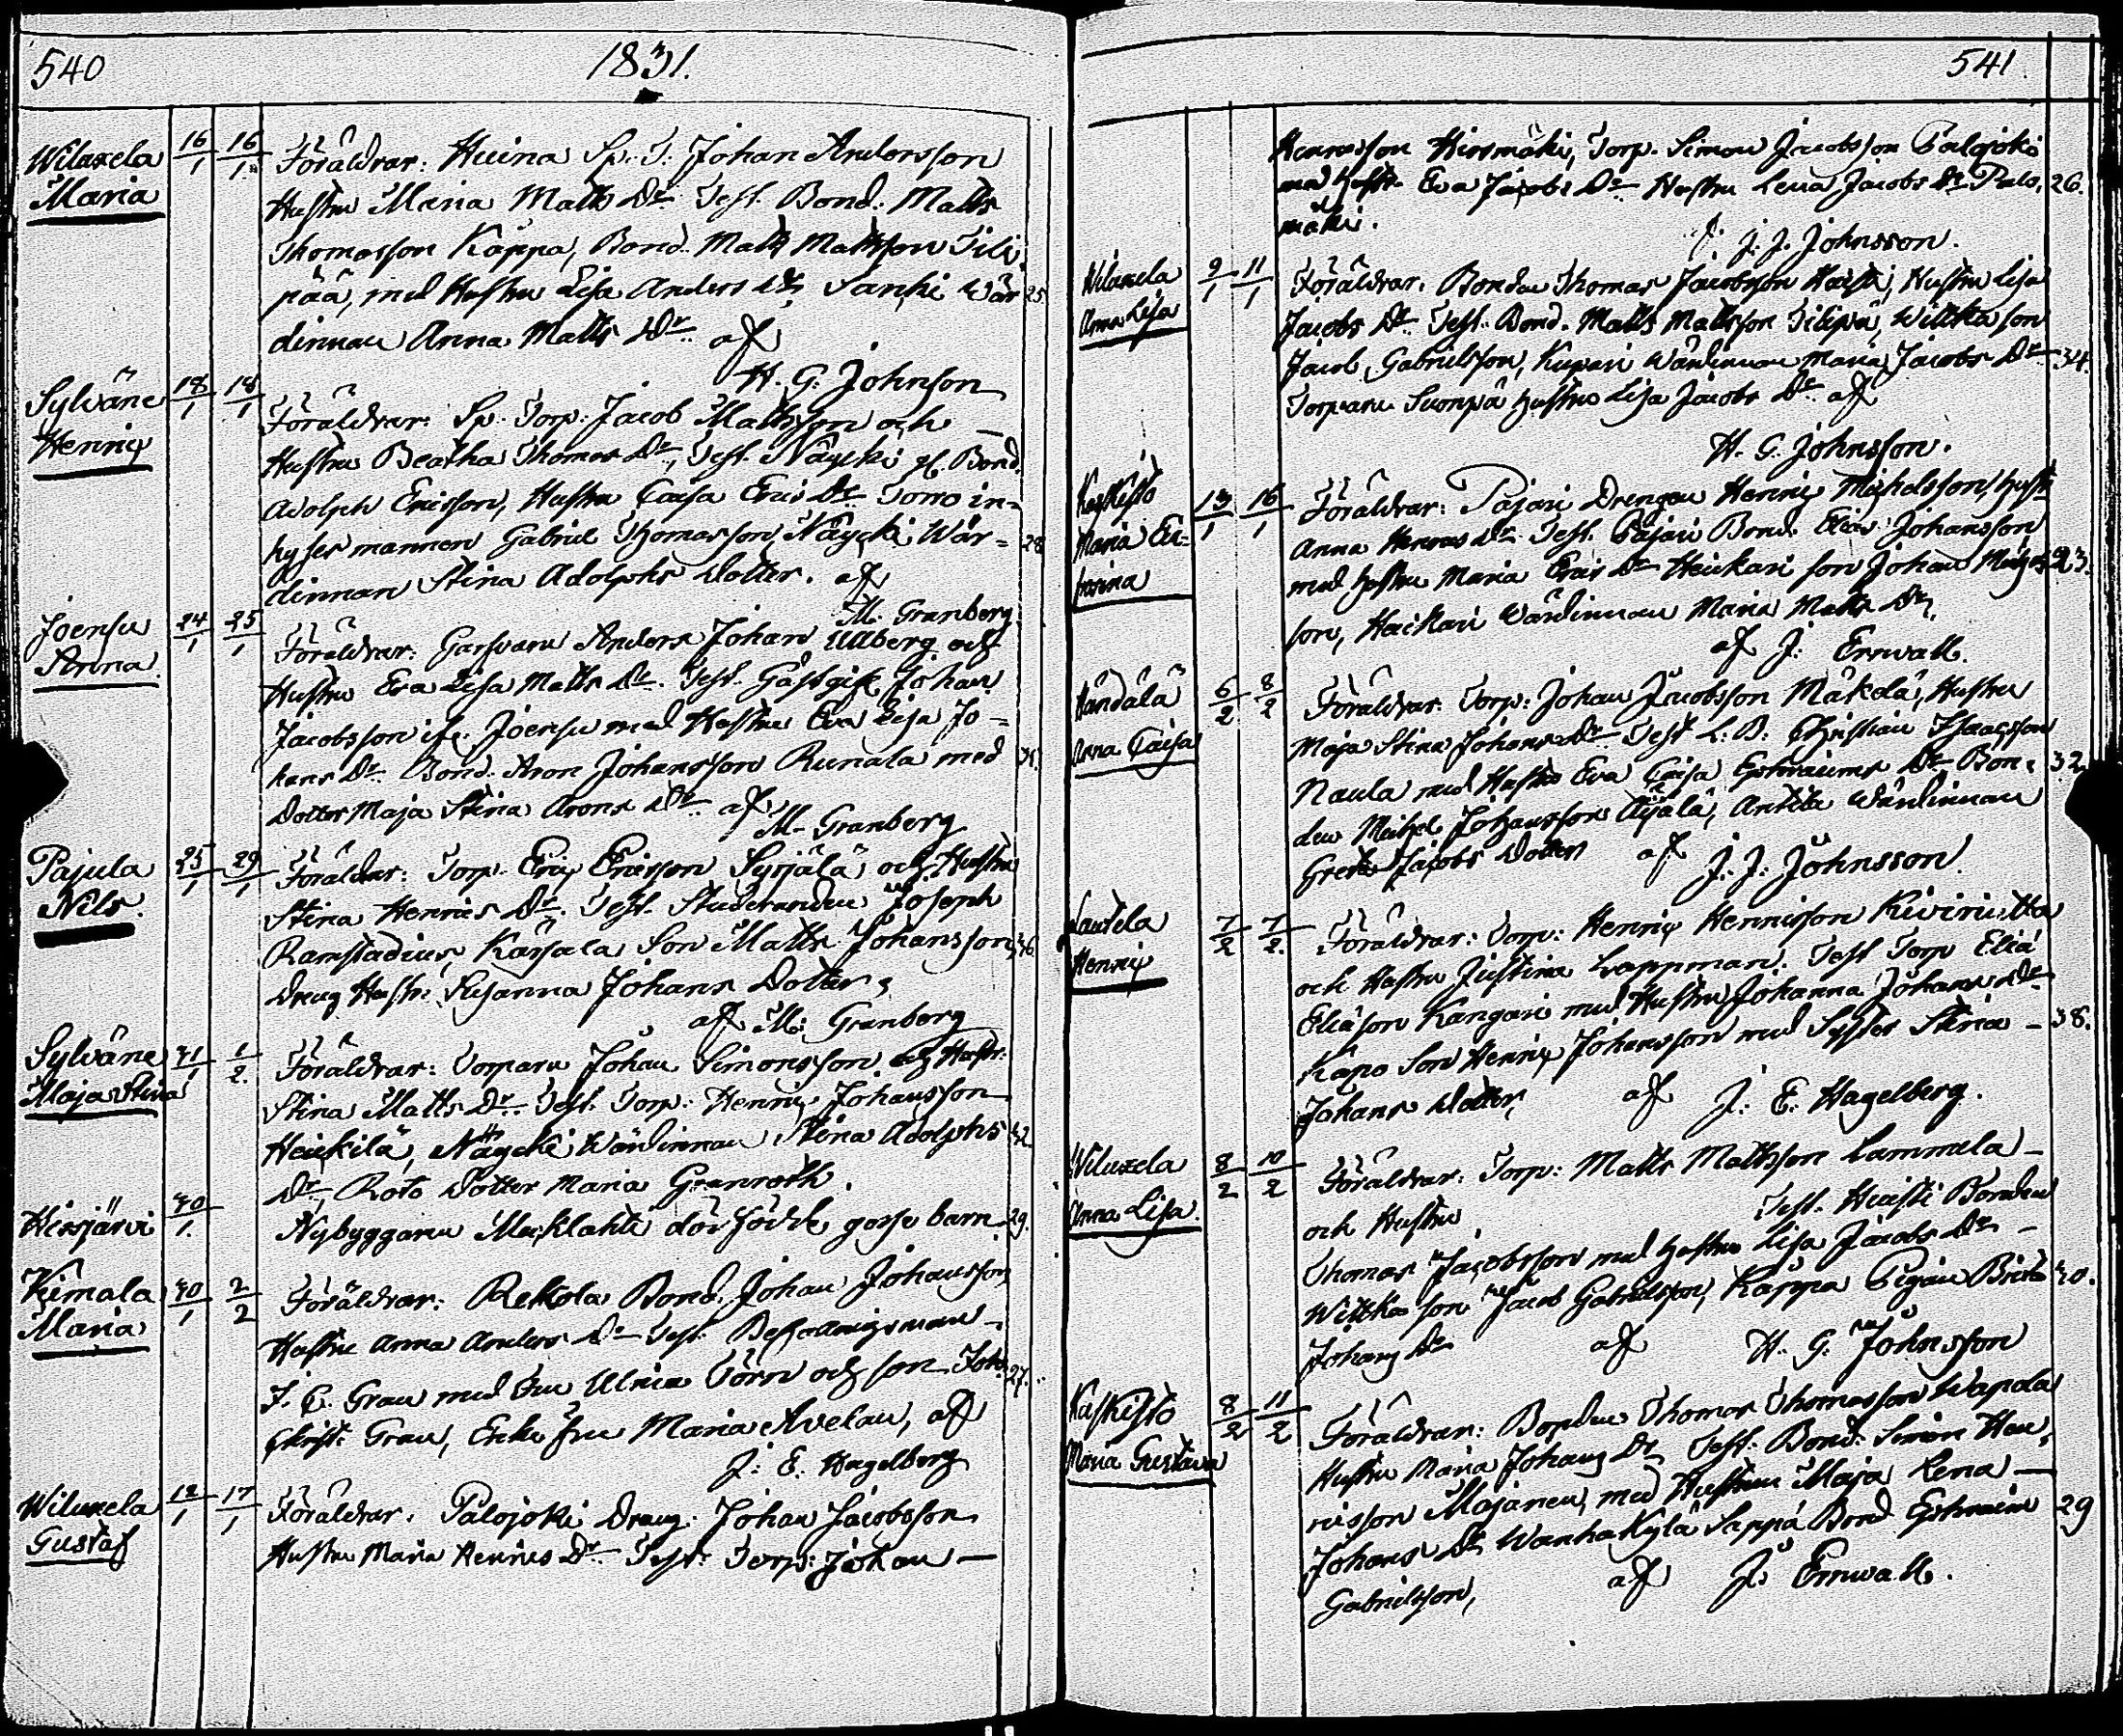 540
1831.
Wiluxela 16/1 16/1 Föräldrar: Heina Sp. T. Johan Andersson
Maria Hustru Maria Matts Dr. Test. Bond. Matts
Thomasson Kåppa, Bond. Matts Mattsson Tili
pää, med Hustru Lisa Anders dr, Sanki Wär 25
dinnan Anna Matts Dr. af
H. G. Johnson
Sylväne 18/1 18/1 Föräldrar: Sp. Torp. Jacob Mattsson och
Henric Hustru Beatha Thomas Dr, Test. Näycki Bond.
Adolph Ericsson, Hustru Caisa Erics Dr Torro in-
hyses mannen Gabriel Thomasson, Näycki Wär- 28
dinnan Stina Adolphs dotter. af
M. Granberg
Joensu 24/1 25/1 Föräldrar: Garfvaren Anders Johan Ullberg och
Anna Hustru Eva Lisa Matts Dr. Test. Gästgif. Johan
Jacobsson Joensu med Hustru Eva Lisa Jo-
hans Dr. Bond. Aron Johansson Runala med
Dotter Maja Stina Arons Dr. af
M. Granberg
Pajula 25/1 29/1 Föräldrar: Torp. Eric Ericsson Syrjälä och Hustru
Nils. Stina Henrics Dr. Test. Studeranden Joseph
Ramstadius, Karsala Son Matts Johansson, 36
Dreng Hustr. Susanna Johans Dotter,
af M. Granberg
Sylväne 31/1 1/2. Föräldrar: Torparen Johan Simonsson och Hustr.
Maja Stina Stina Matts Dr. Test. Torp. Henric Johansson
Heickilä, Näycki Wärdinnan Stina Adolphs 32
Dr, Roto Dotter Maria Granroth.
Hirsjärvi 30/1. Nybyggaren Muklahti dödfödde gosse barn 29.
Kimala 30/1 2/2 Föräldrar: Rekola Bond. Johan Johansson
Maria Hustru Anna Anders Dr Test. Befallningsman
J. C. Grau med Fru Ulrica Törn och son Joh. 27.
Christ. Grau, Enke fru Maria Avelau, af
J. E. Hagelberg
Wiluxela 12/1 17/1 Föräldrar. Palojoki Dreng. Johan Jacobsson
Gustaf Hustru Maria Henrics Dr. Test. Torp. Johan
541.
Henricsson Hirsmäki, Torp. Simon Jacobsson Palojoki
med hustr. Eva Jacobs Dr. Hustru Lena Jacobs Dr Palo, 26.
mäki.
af J. J. Johnsson.
Wiluxela 9/1 11/1 Föräldrar. Bonden Thomas Jacobsson Haisti, Hustru Lisa
Anna Lisa Jacobs Dr. Test. Bond. Matts Mattsson Tilipä, Wittka son
Jacob Gabrielsson, Kupari Wärdinnan Maria Jacobs Dr 34.
Torparen Suonpä hustru Lisa Jacobs Dr. af
H. G. Johnsson.
Kaskisto 13/1 16/1 Föräldrar: Pajari Drengen Henric Michelsson, hustr
Maria Ca- Anna Henrics Dr. Test. Pajari Bond. Elias Johansson
tharina med hustru Maria Erics Dr Heickari son Johan Michels 23.
son, Heickari Wärdinnan Maria Matts Dr,
af J. Ernwall.
Handälä 6/2 8/2 Föräldrar. Torp. Johan Jacobsson Mäkelä, Hustru
Anna Caisa Maja Stina Johans Dr Test L. B. Christian Isaacsson
Naula med Hustru Eva Caisa Ephraims Dr Bon- 32
den Michel Johansson Äijälä, Antila Wärdinnan
Greta Jacobs dotter af
J. J. Johnsson
Lautela 7/2 7/2. Föräldrar: Torp. Henric Henricsson Kiviniitta
Henric och Hustru Justina Lappman. Test Torp Elia
Eliason Kangari med Hustru Johanna Johans dr
Kapo Son Henric Johansson med Syster Stina 38.
Johans dotter, af J. E. Hagelberg.
Wiluxela 8/2 10/2 Föräldrar. Torp. Matts Mattsson Lammela
Anna Lisa. och Hustru Test. Haisti Bonden
Thomas Jacobsson med hustru Lisa Jacobs Dr
Wittka son Jacob Gabrielsson, Kåppa Pigan Brita 30.
Johans Dr af H. G. Johnsson
Kaskisto 8/2 11/2 Föräldrar: Bonden Thomas Thomasson Wapola
Maria Gustava Hustru Maria Johans Dr Test. Bond. Simon Hen,
ricsson Majanen, med Hustrun Maja Lena
Johans Dr Wanha Kylä Sappä Bond Ephraim 29
Gabrielsson, af J. Ernwall.